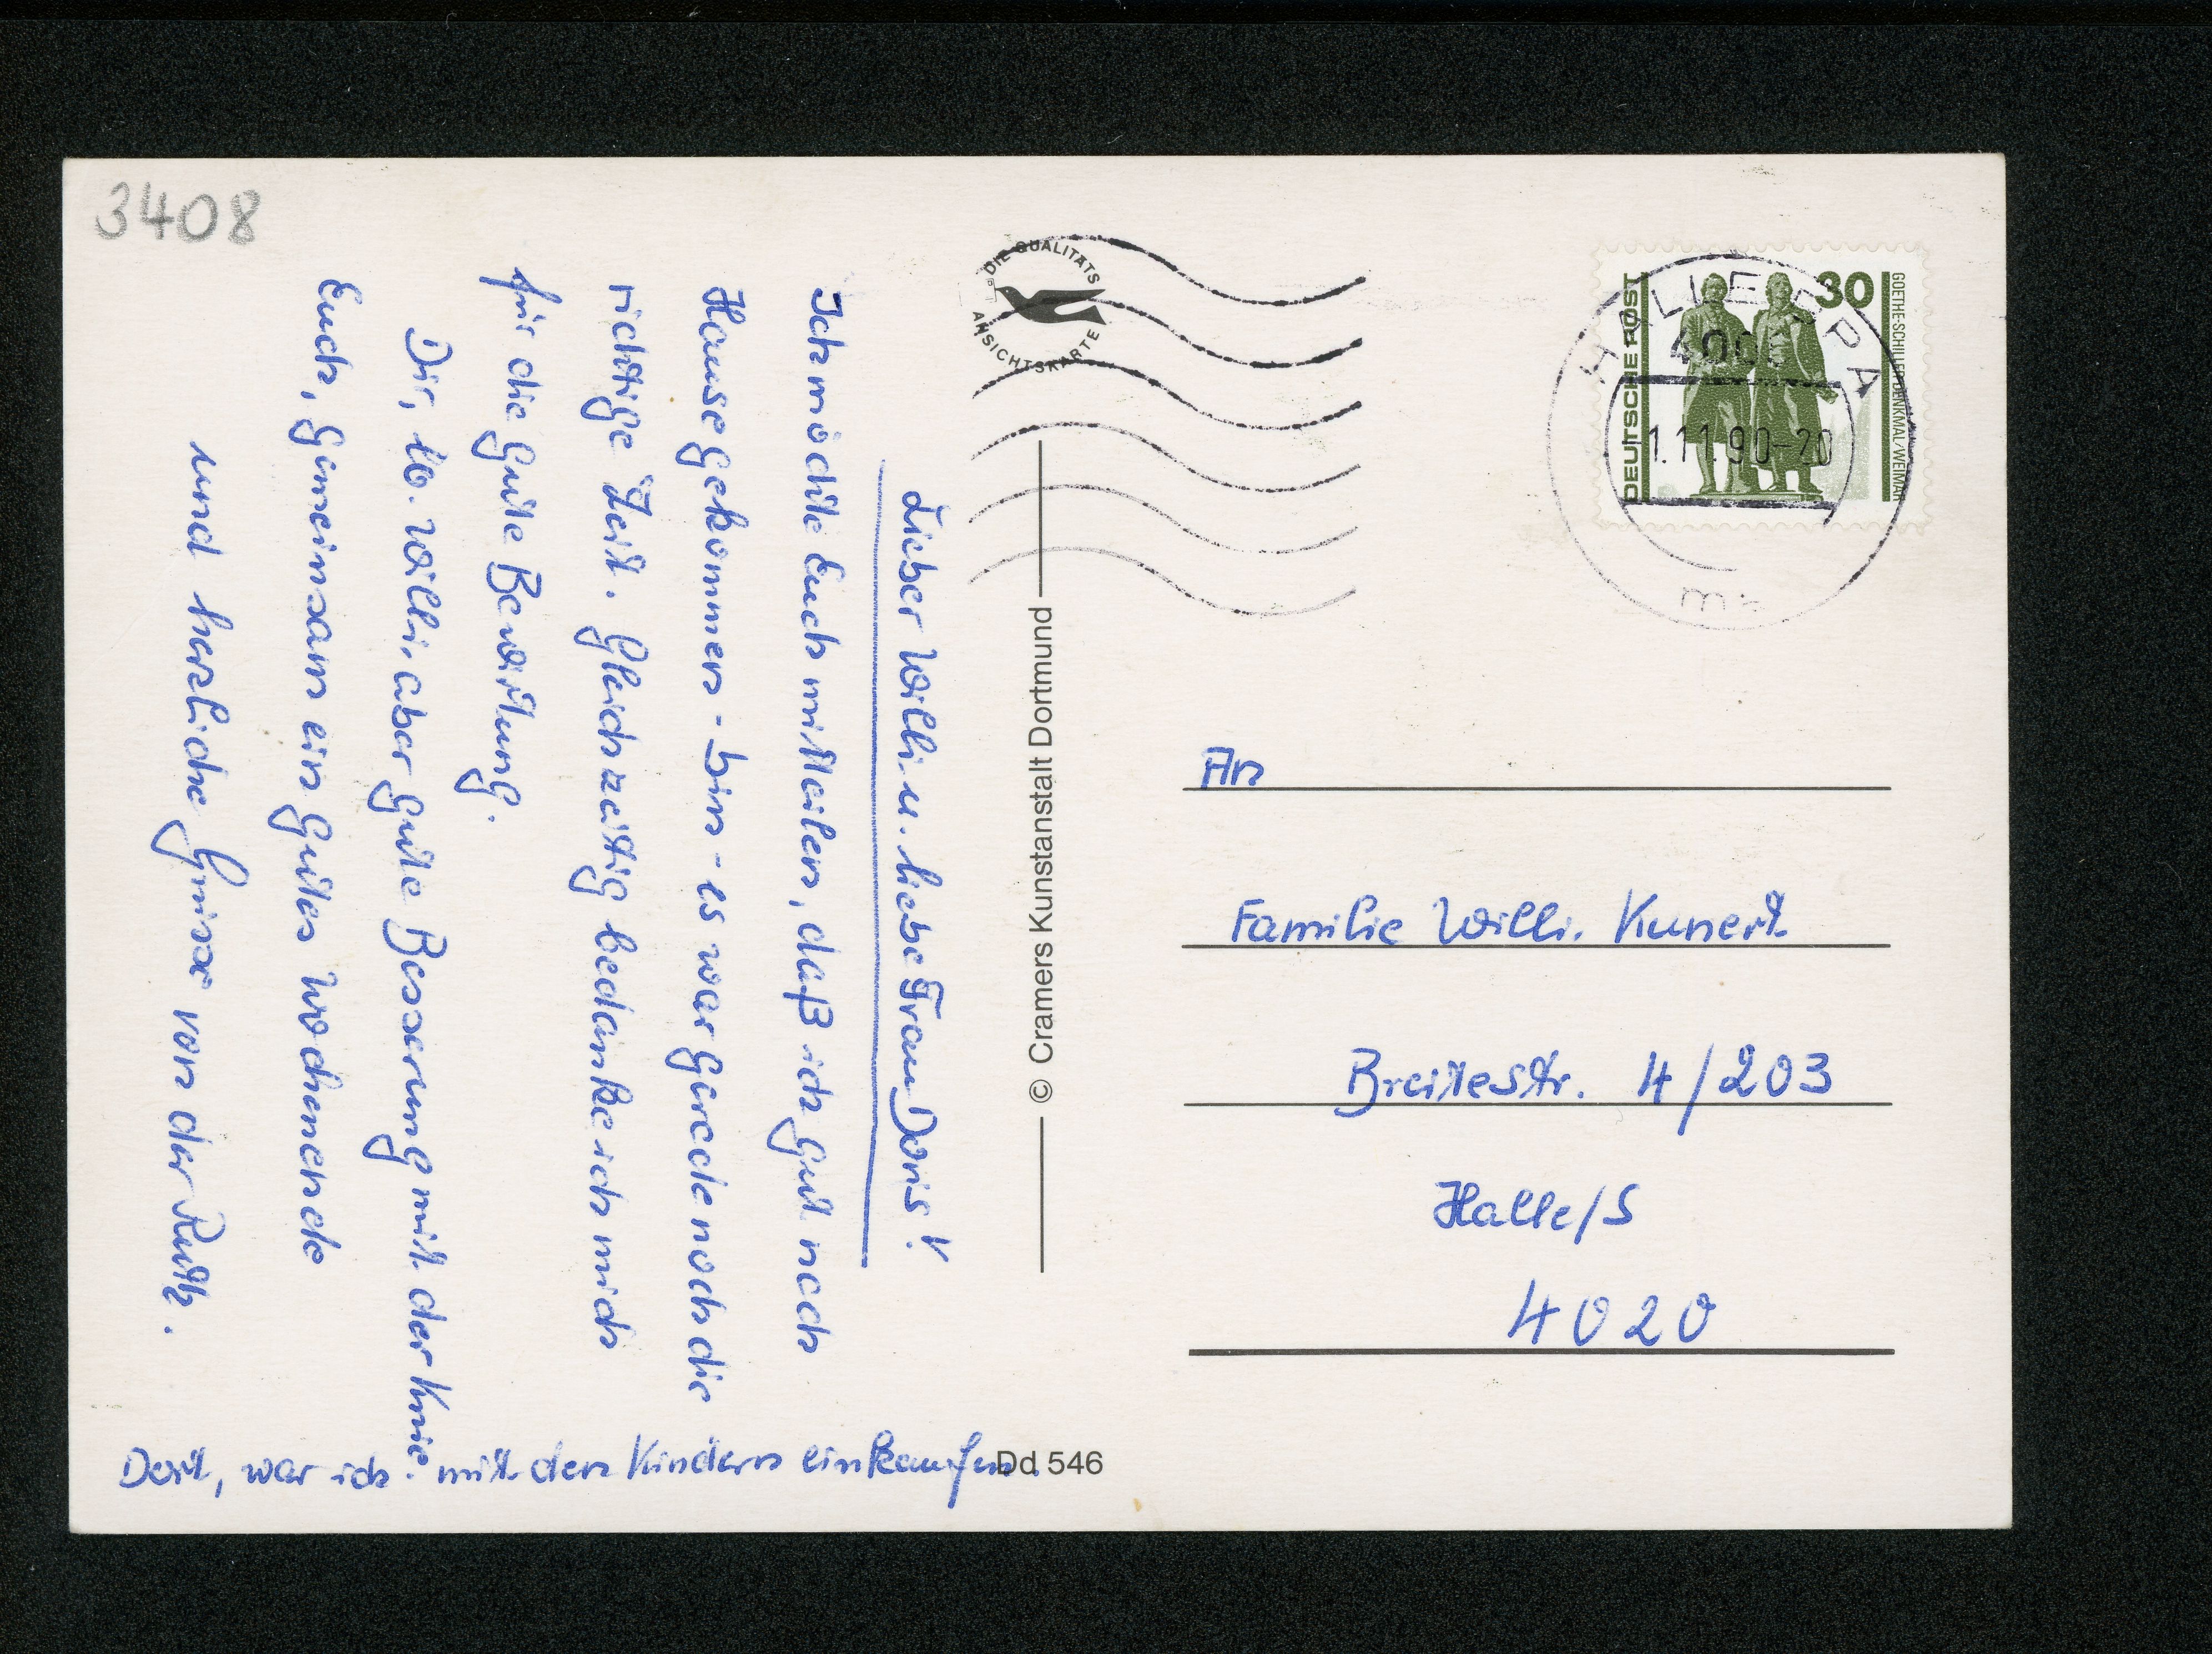 3408
Lieber Willi u. liebe Frau Doris!
Ich möchte Euch mitteilen, daß ich gut nach
Hause gekommen - bin - es war gerade noch die
richtige Zeit. Gleichzeitig bedanke ich mich
für die gute Bewirtung.
Dir, lb. Willi, aber gute Besserung mit der Knie.
Euch, gemeinsam ein gutes Wochenende
und herzliche Grüsse von der Ruth.
Dort, war ich mit den Kindern einkaufen.
DIE QUALITÄTS
ANSICHTSKARTE
© Cramers Kunstanstalt Dortmund
Dd 546
DEUTSCHE POST
30
GOETHE-SCHILLER-DENKMAL/WEIMAR
HALLE SPA
1.11.90-20
An
Familie Willi Kunert
Breitestr. 4/203
Halle/S
4020